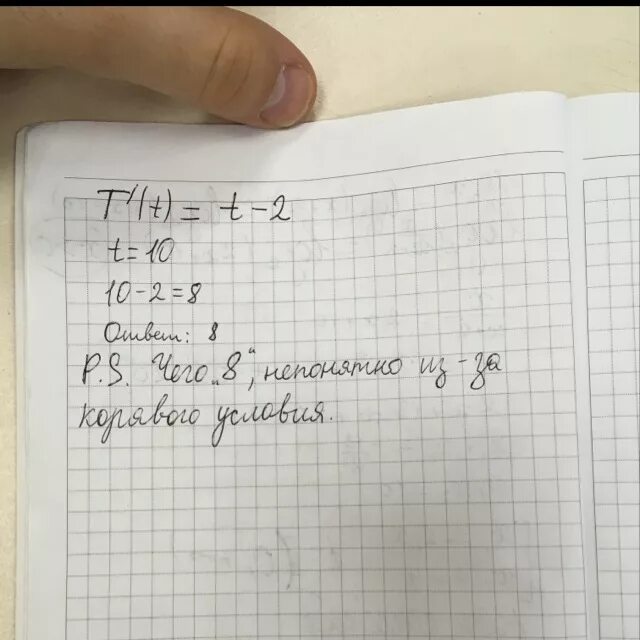 T'(t) = t-2
t=10
10-2=8
Ответ: 8
P.S. Чего „8“, непонятно из-за
корявого условия.